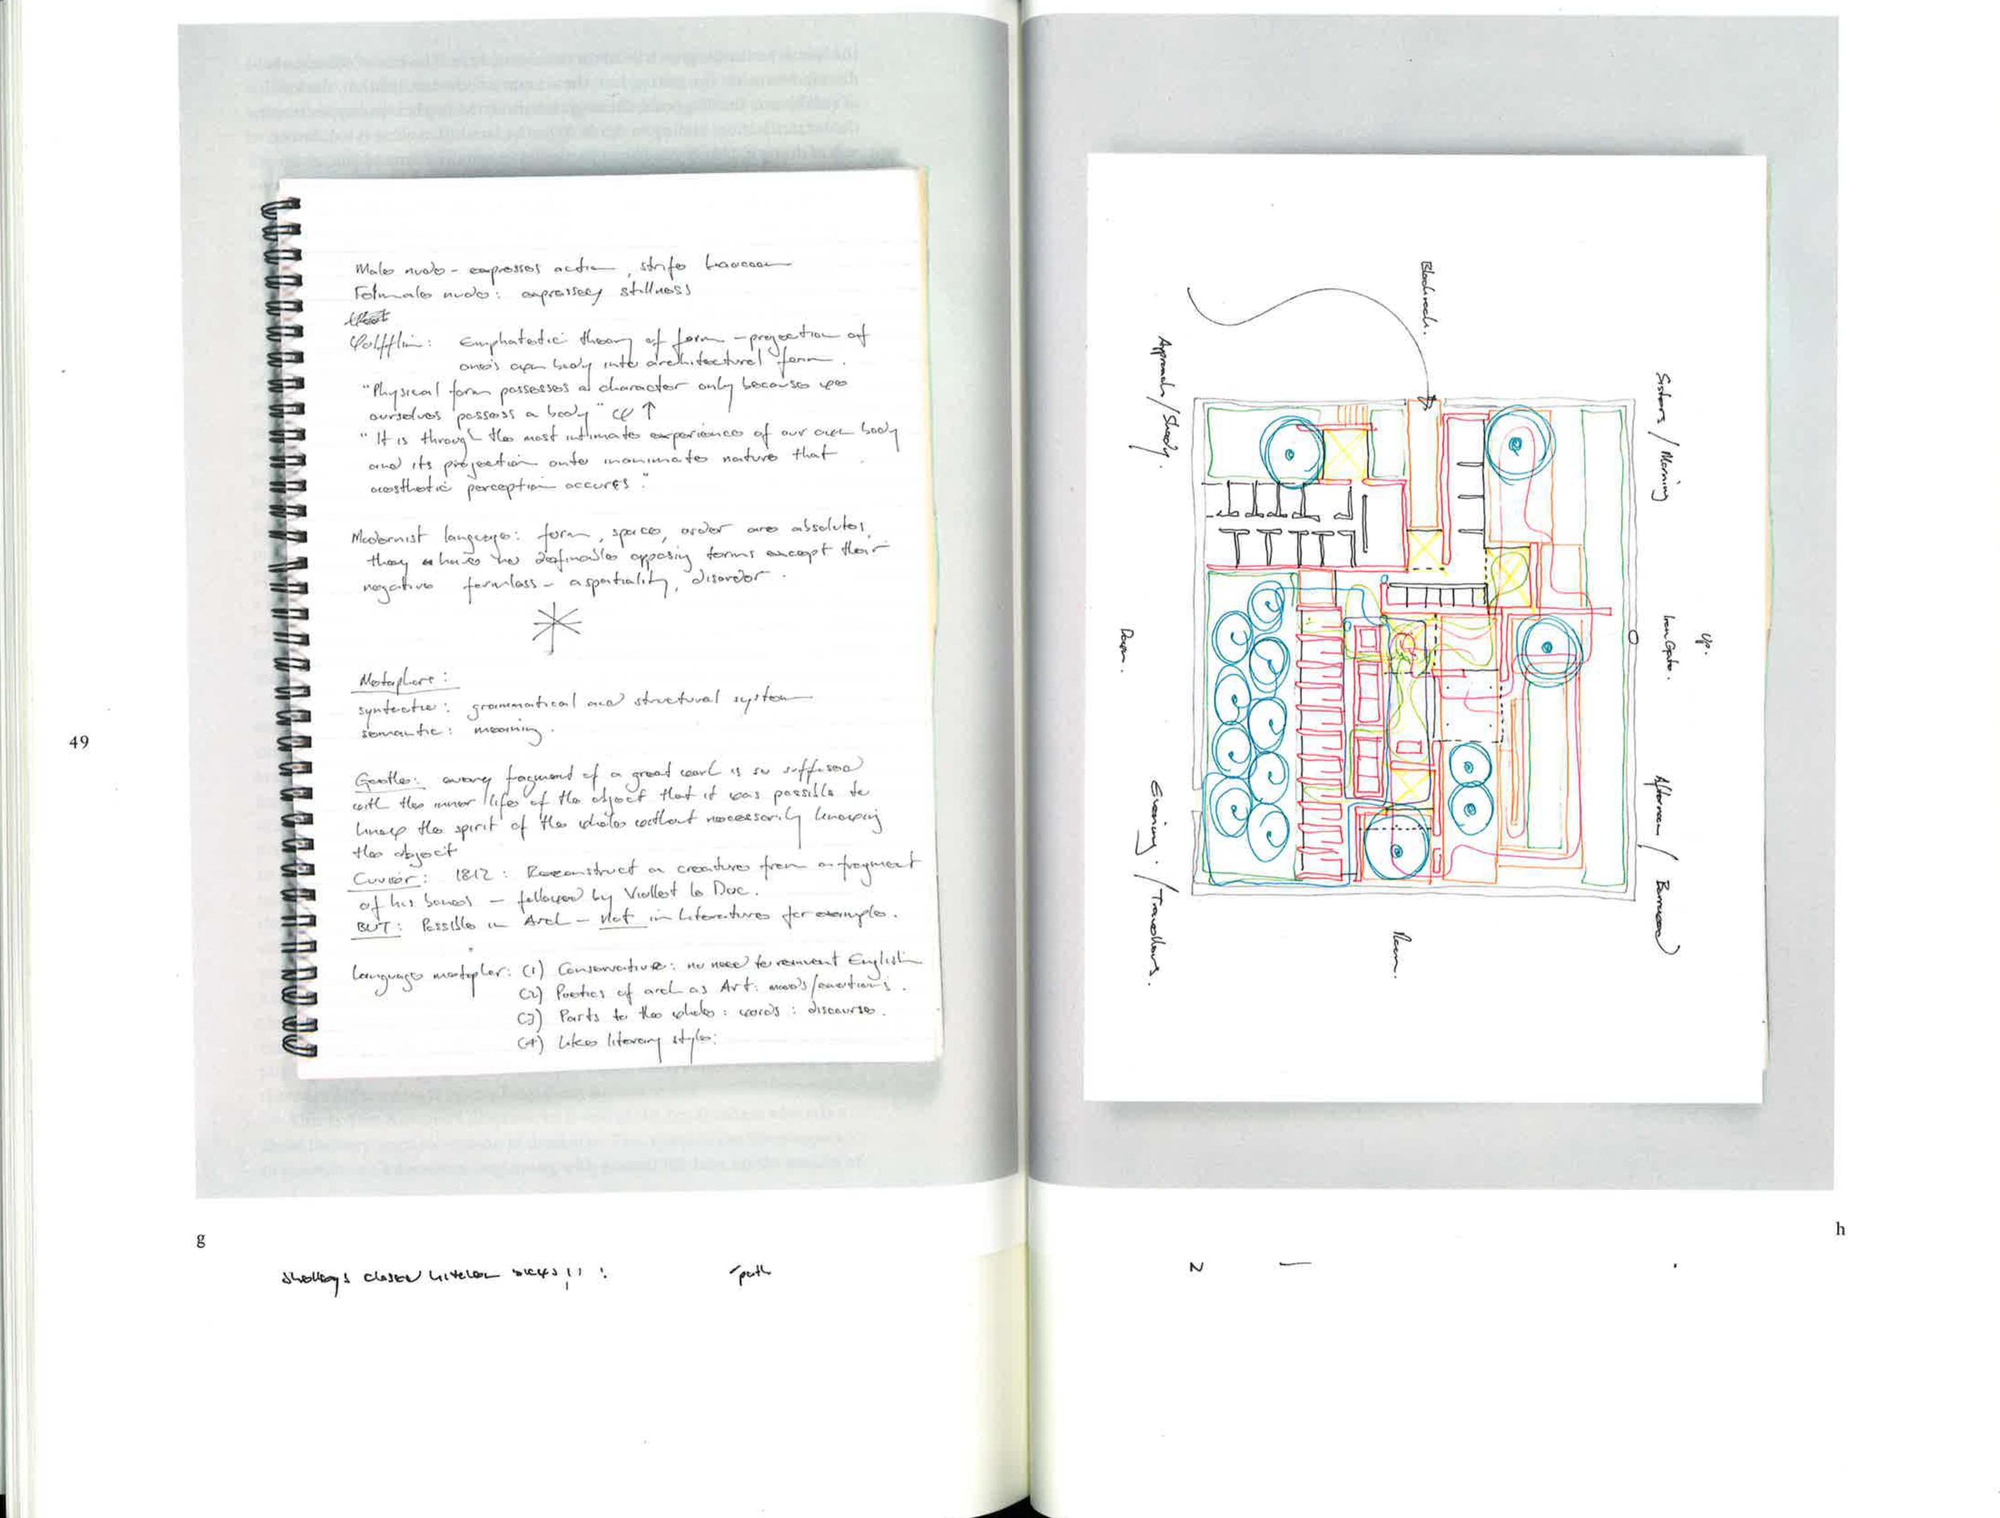 Male nude - expresses action, strife Laocoon
Female nude: expresses stillness
Wölfflin: Emphatetic theory of form - projection of
one's own body into architectural form.
"Physical form possesses a character only because we
ourselves possess a body"
"It is through the most intimate experience of our own body
and its projection onto inanimate nature that
aesthetic perception occures".
Modernist language: form, space, order are absolutes,
they have no definable opposing terms except their
negative formless - aspatiality, disorder.
Metaphors:
syntactic: grammatical and structural system
semantic: meaning.
Goethe: every fragment of a great work is so suffused
with the inner life of the object that it was possible to
know the spirit of the whole without necessarily knowing
the object
Cuvier: 1812: Reconstruct a creature from a fragment
of his bones - followed by Viollet le Duc.
BUT: Possible in Arch - Not in literature for example.
Language metaphor: (1) Conservative: no need to reinvent English
(2) Poetics of arch as Art: moods/emotions.
(3) Parts to the whole: words: discourse.
(4) Like literary style:
49
g
path
Approach / Study.
Down.
Evening / Travellers.
Sisters / Morning
Iron Gate.
Up.
Afternoon /
h
N